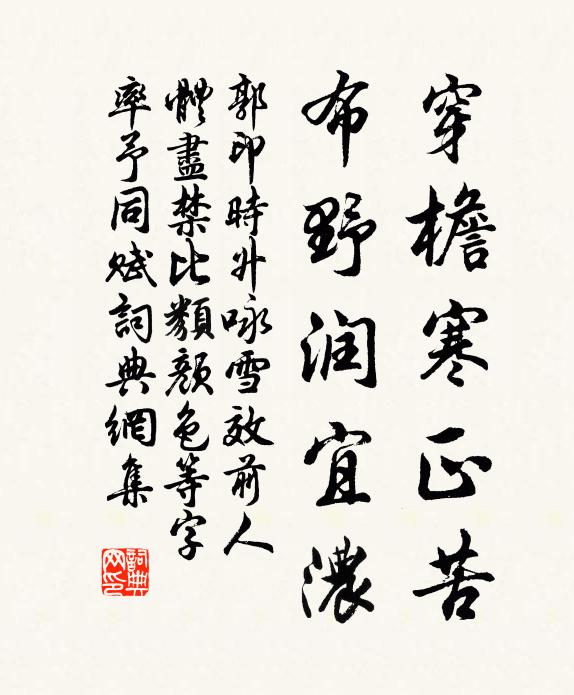 穿檐寒正苦
布野润宜濃
郭印時升咏雪效前人
體盡禁比類顔色等字
率予同赋詞典網集
詞典网印